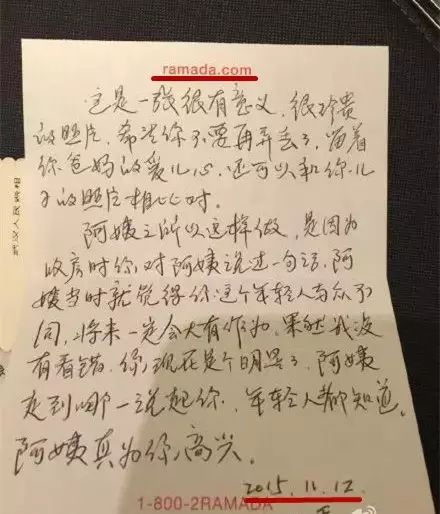 ramada.com
这是一张很有意义，很珍贵
的照片，希望你不要再弄丢了，留着
你爸妈的爱儿心，还可以和你儿
子的照片相比对。
阿姨之所以这样做，是因为
收房时你对阿姨说过一句话，阿
姨当时就觉得你这个年轻人与众不
同，将来一定会大有作为，果然我没
有看错，你现在是个明星了，阿姨
走到哪一说起你，年轻人都知道。
阿姨真为你高兴。
2015.11.12
1-800-2RAMADA